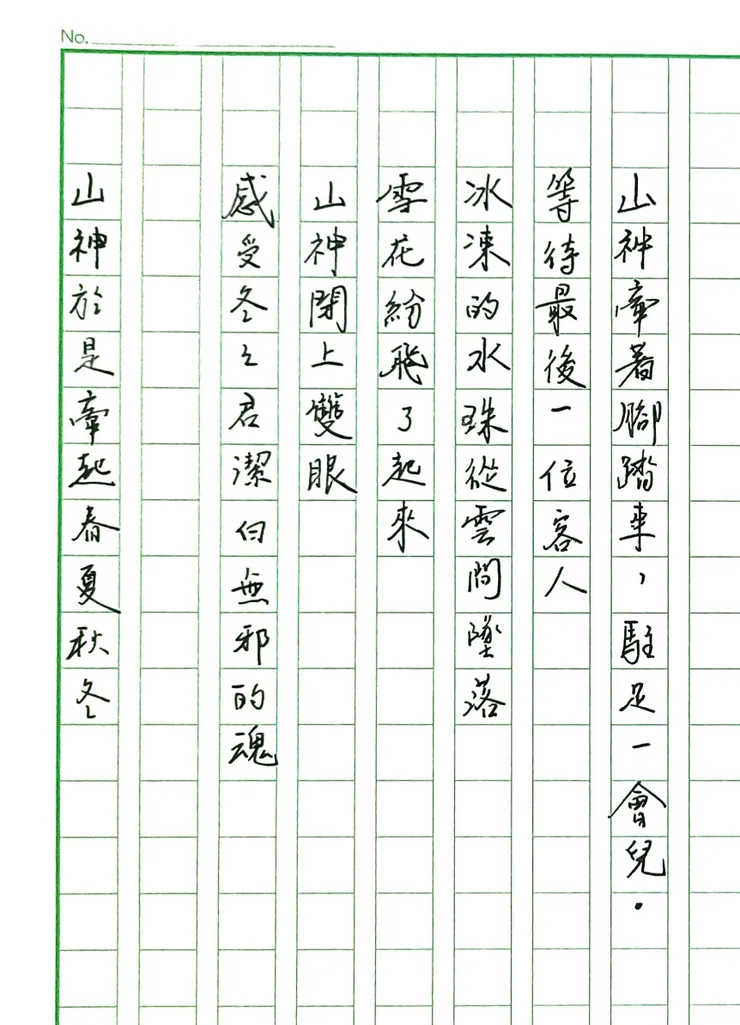 No.
山神牽著腳踏車，駐足一會兒.
等待最後一位客人
冰凍的水珠從雲間墜落
雪花紛飛了起來
山神閉上雙眼
感受冬之君潔白無邪的魂
山神於是牽起春夏秋冬